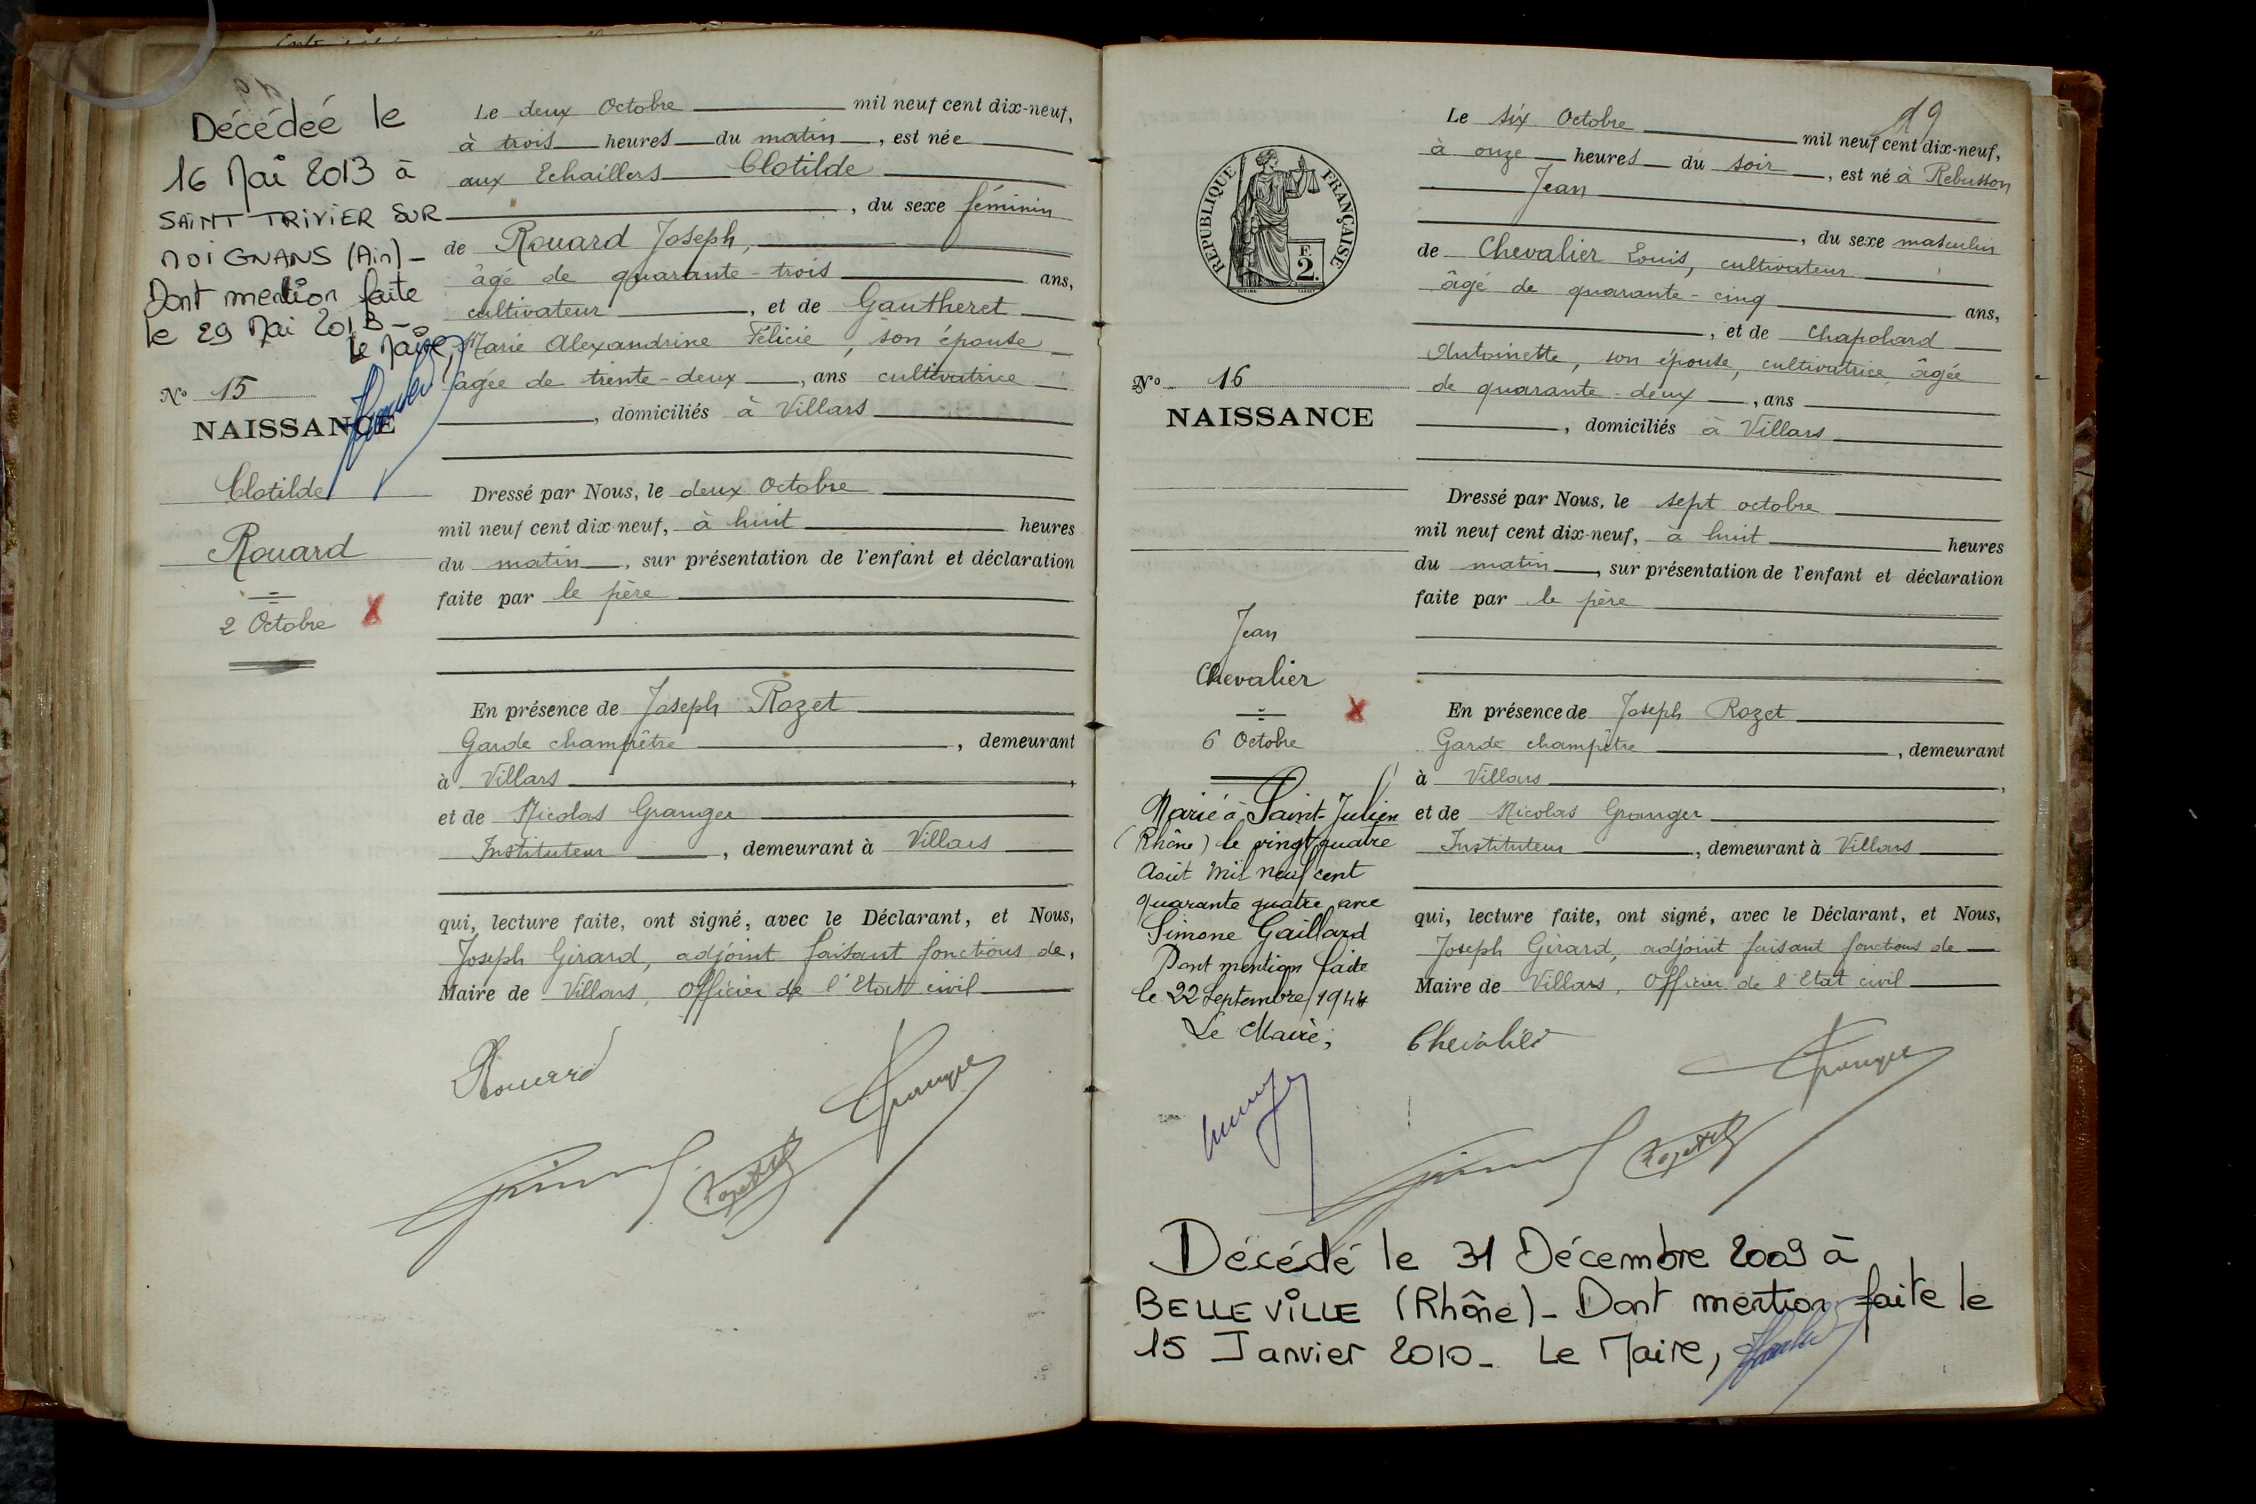 Décédée le
16 Mai 2013 à
SAINT TRIVIER SUR
MOIGNANS (Ain)_
Dont mention faite
le 29 Mai 2013_
Le Maire,
N° 15
NAISSANCE
Clotilde
Rouard
2 Octobre
Le deux Octobre mil neuf cent dix-neuf,
à trois heures du matin, est née
aux Echaillers Clotilde
, du sexe féminin
de Rouard Joseph,
âgé de quarante-trois ans,
cultivateur, et de Gautheret
Marie Alexandrine Félicie, son épouse
âgée de trente-deux, ans cultivatrice
, domiciliés à Villars
Dressé par Nous, le deux Octobre
mil neuf cent dix-neuf, à huit heures
du matin, sur présentation de l'enfant et déclaration
faite par le père
En présence de Joseph Rozet
Garde champêtre, demeurant
à Villars,
et de Nicolas Granger
Instituteur, demeurant à Villars
qui, lecture faite, ont signé, avec le Déclarant, et Nous,
Joseph Girard, adjoint faisant fonctions de,
Maire de Villars, Officier de l'Etat civil
Rouard
Granger
19
RÉPUBLIQUE FRANÇAISE
F.
2.
N° 16
NAISSANCE
Jean
Chevalier
6 Octobre
Marié à Saint-Julien
(Rhône) le vingt quatre
Août mil neuf cent
quarante quatre avec
Simone Gaillard
Dont mention faite
le 22 Septembre 1944
Le Maire,
Le six Octobre mil neuf cent dix-neuf,
à onze heures du soir, est né à Rebusson
Jean
, du sexe masculin
de Chevalier Louis, cultivateur
âgé de quarante-cinq ans,
, et de Chapolard
Antoinette, son épouse, cultivatrice, âgée
de quarante-deux, ans
, domiciliés à Villars
Dressé par Nous, le sept octobre
mil neuf cent dix-neuf, à huit heures
du matin, sur présentation de l'enfant et déclaration
faite par le père
En présence de Joseph Rozet
Garde champêtre, demeurant
à Villars,
et de Nicolas Granger
Instituteur, demeurant à Villars
qui, lecture faite, ont signé, avec le Déclarant, et Nous,
Joseph Girard, adjoint faisant fonctions de
Maire de Villars, Officier de l'Etat civil
Chevalier
Granger
Décédé le 31 Décembre 2009 à
BELLEVILLE (Rhône)_ Dont mention faite le
15 Janvier 2010_ Le Maire,